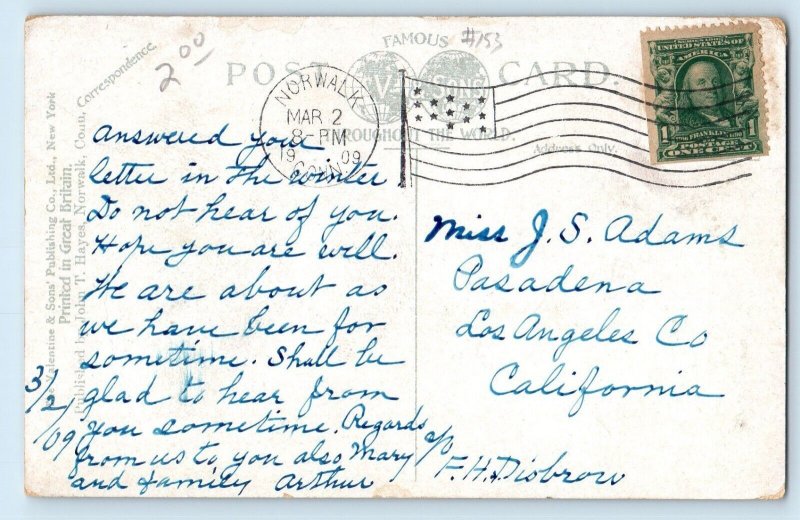 2.00
#153
FAMOUS
POST CARD.
THROUGHOUT THE WORLD.
Address Only.
Correspondence.
Valentine & Sons' Publishing Co., Ltd., New York
Printed in Great Britain.
Published by John T. Hayes, Norwalk, Conn.
NORWALK
MAR 2
8-PM
1909
CONN.
UNITED STATES OF
AMERICA
FRANKLIN
POSTAGE
1 ONE CENT 1
Answered your
letter in the winter
Do not hear of you.
Hope you are well.
We are about as
we have been for
sometime. Shall be
glad to hear from
you sometime. Regards
from us to you also Mary
and family Arthur
3/2/09
Miss J. S. Adams
Pasadena
Los Angeles Co
California
c/o
F. H. Disbrow